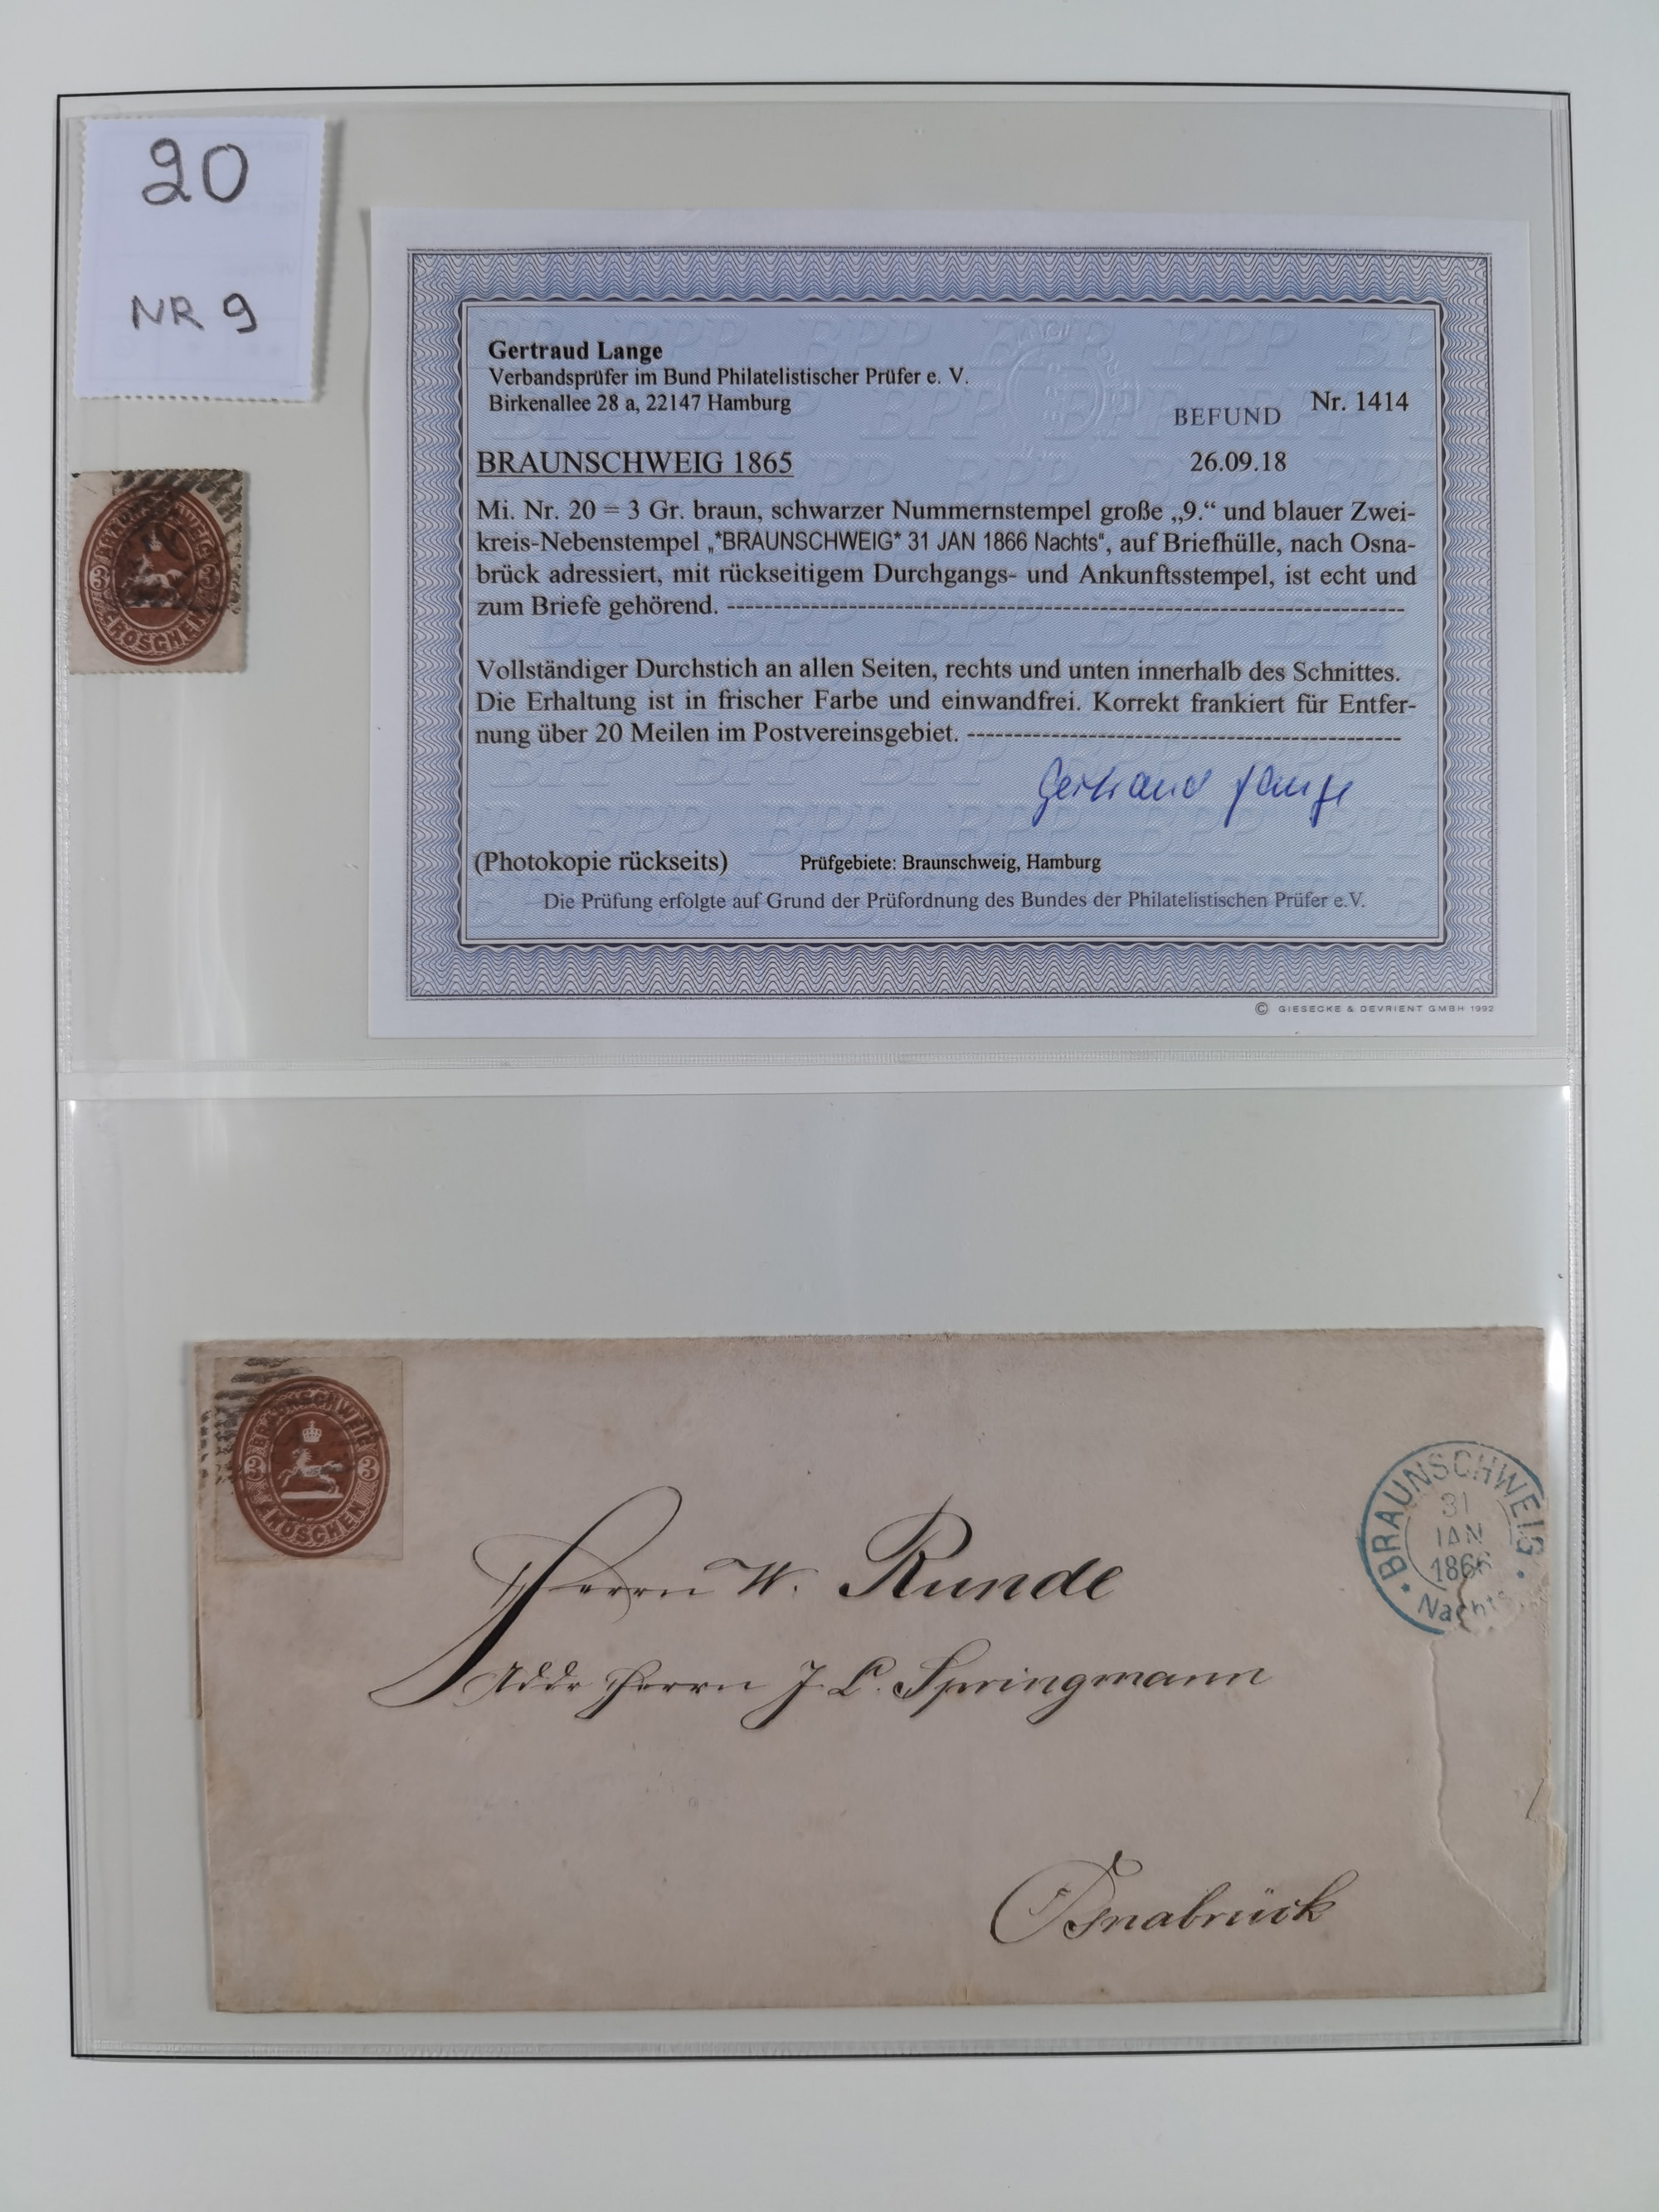 20
NR 9
BRAUNSCHWEIG
3 3
GROSCHEN
Gertraud Lange
Verbandsprüfer im Bund Philatelistischer Prüfer e. V.
Birkenallee 28 a, 22147 Hamburg
BEFUND Nr. 1414
BRAUNSCHWEIG 1865 26.09.18
Mi. Nr. 20 = 3 Gr. braun, schwarzer Nummernstempel große „9.“ und blauer Zwei-
kreis-Nebenstempel „*BRAUNSCHWEIG* 31 JAN 1866 Nachts“, auf Briefhülle, nach Osna-
brück adressiert, mit rückseitigem Durchgangs- und Ankunftsstempel, ist echt und
zum Briefe gehörend. ----------------------------------------------------------------------
Vollständiger Durchstich an allen Seiten, rechts und unten innerhalb des Schnittes.
Die Erhaltung ist in frischer Farbe und einwandfrei. Korrekt frankiert für Entfer-
nung über 20 Meilen im Postvereinsgebiet. ---------------------------------------------
Gertraud Lange
(Photokopie rückseits) Prüfgebiete: Braunschweig, Hamburg
Die Prüfung erfolgte auf Grund der Prüfordnung des Bundes der Philatelistischen Prüfer e.V.
© GIESECKE & DEVRIENT GMBH 1992
BRAUNSCHWEIG
3 3
GROSCHEN
BRAUNSCHWEIG
31
JAN
1866
Nachts
Herrn W. Runde
Addr Herrn J. C. Springmann
Osnabrück